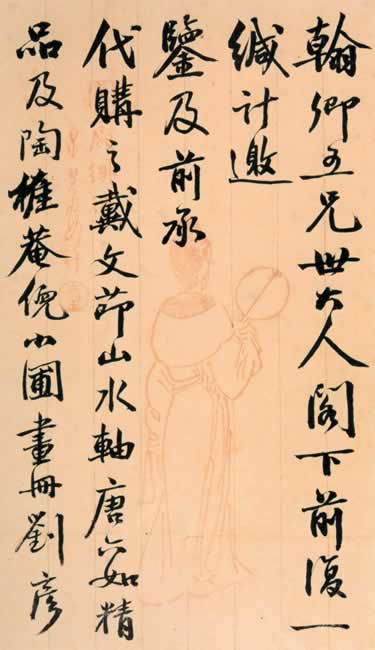 翰卿五兄世大人閣下前復一
緘計邀
鑒及前承
代購之戴文節山水軸唐六如精
品及陶稚菴倪小圃畫冊劉彥